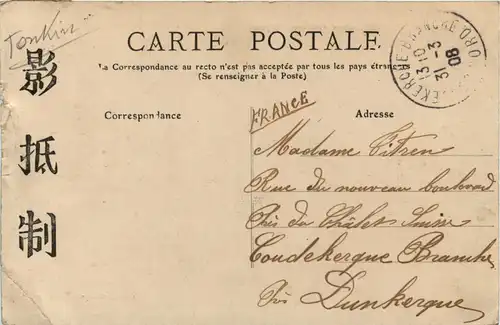 Tonkin
影抵制
CARTE POSTALE
La Correspondance au recto n'est pas acceptée par tous les pays étrangers
(Se renseigner à la Poste)
Correspondance
FRANCE
Adresse
Madame Vitren
Rue du nouveau boulevard
Près du Châlet Suisse
Coudekerque Branche
Près Dunkerque
COUDEKERQUE-BRANCHE NORD
13 10
3 -3
08